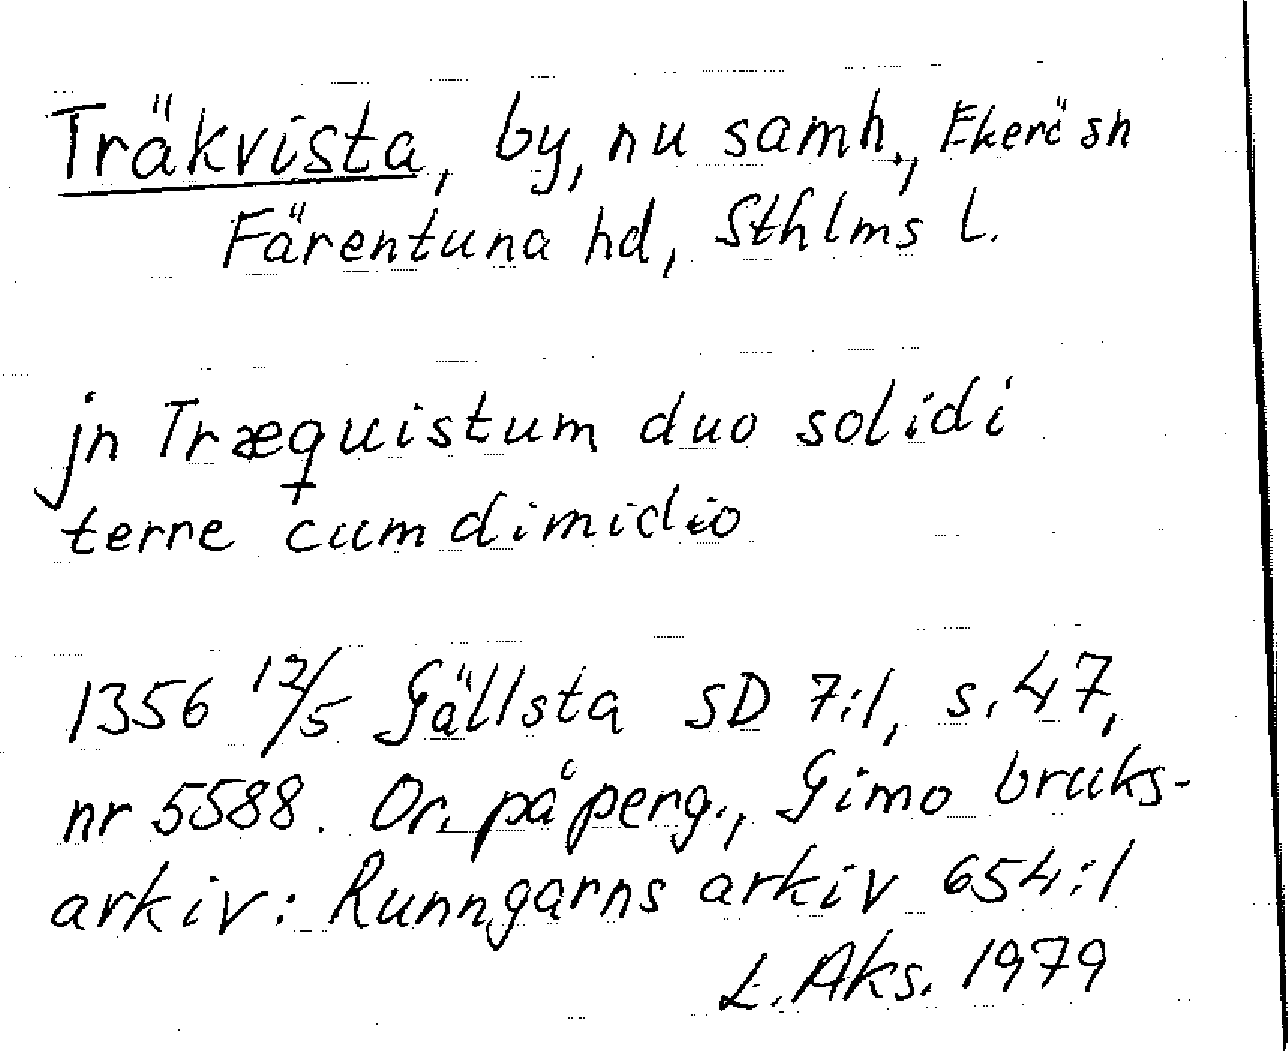 Träkvista, by, nu samh., Ekerö sn
Färentuna hd, Sthlms l.
jn Træquistum duo solidi
terre cum dimidio
1356 12/5 Gällsta SD 7:1, s. 47,
nr 5588. Or. på perg., Gimo bruks-
arkiv: Runngarns arkiv 654:1
L. Aks. 1979